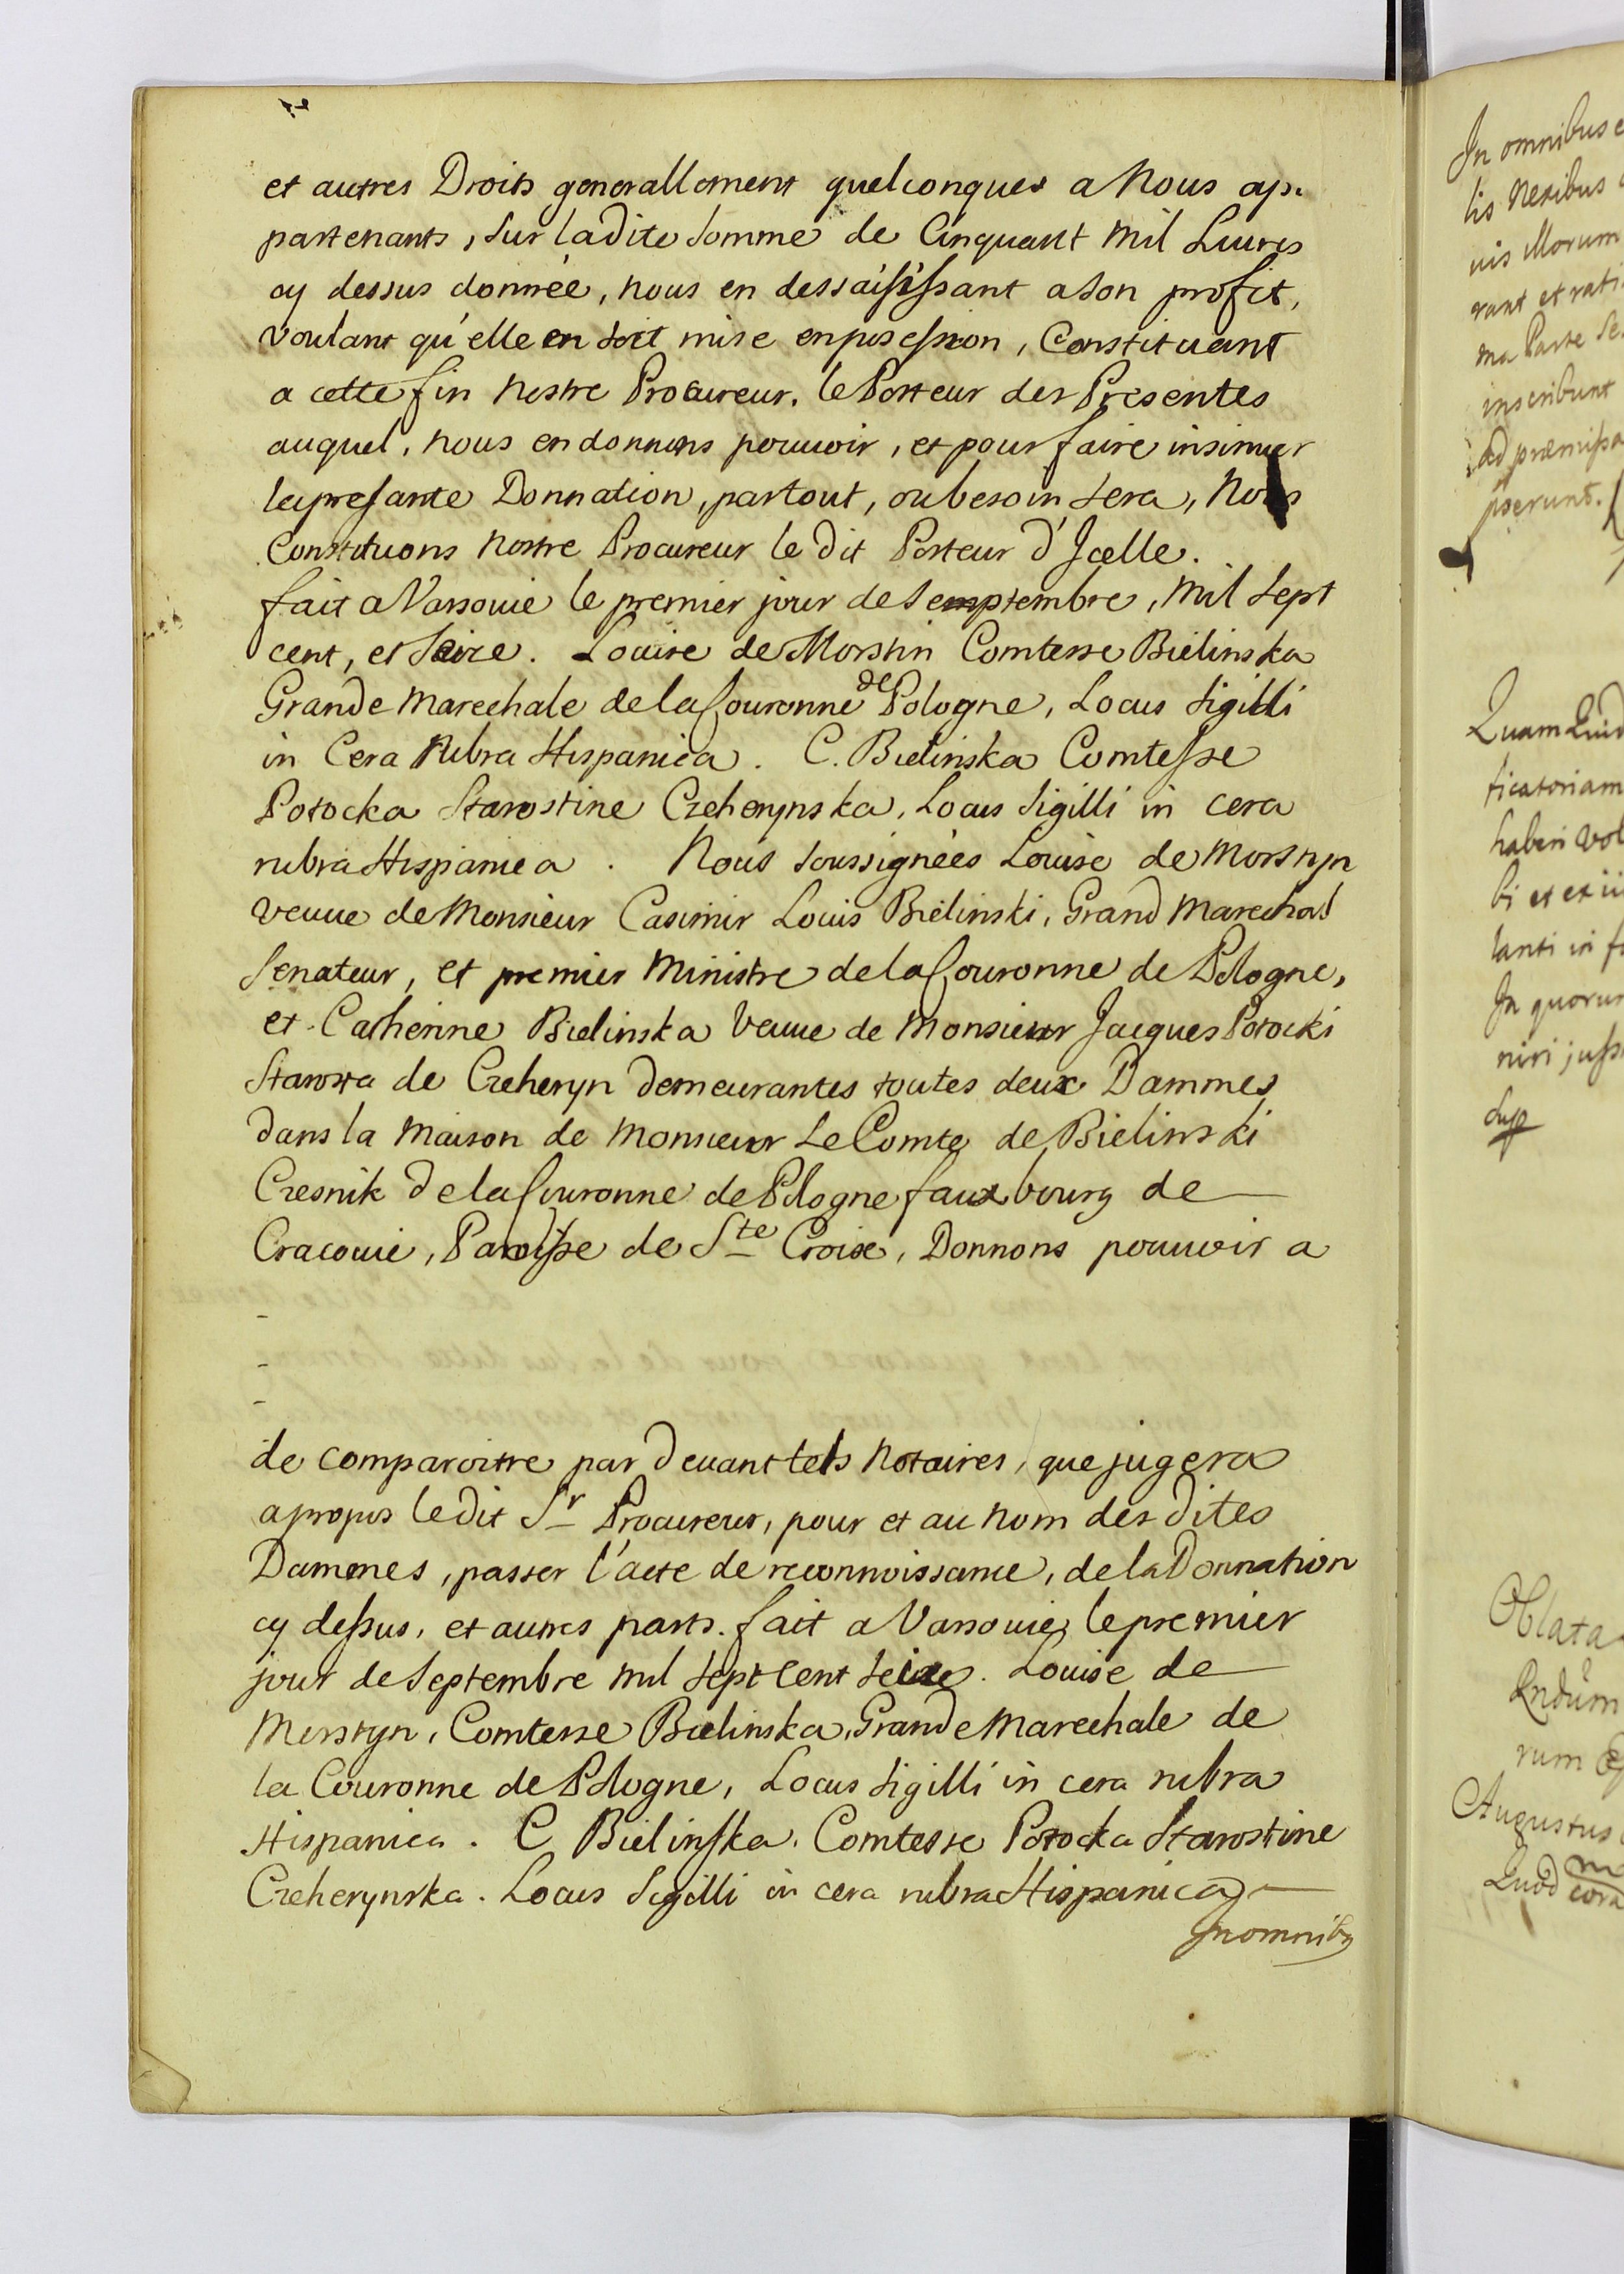 et autres Droits generallement quelconques a Nous ap=
partenants, sur ladite somme de Cinquant mil Liures
cy dessus donnée, nous en dessaisissant a son profit,
voulant qu'elle en soit mise en possession, Constituant
a cette fin nostre Procureur, le Porteur des Presentes
auquel, nous en donnons pouuoir, et pour faire insinuer
la presante Donnation, partout, ou besoin sera, Nous
Constituons nostre Procureur le dit Porteur d'Icelle.
fait a Varsouie le premier jour de Semptembre, mil sept
cent, et Seize. Louise de Morstin Comtesse Bielinska
Grande Marechale de la Couronne de Pologne, Locus Sigilli
in Cera Rubra Hispanica. C. Bielinska Comtesse
Potocka Starostine Czeherynska, Locus Sigilli in cera
rubra Hispanica. Nous soussignées Louise de Morstyn
veuue de Monsieur Casimir Louis Bielinski, Grand Marechal
Senateur, et premier Ministre de la Couronne de Pologne,
et Catherine Bielinska Veuue de Monsieur Jacques Potocki
Starosta de Czeheryn demeurantes toutes deux Dammes
dans la Maison de Monsieur Le Comte de Bielinski
Czesnik de la Couronne de Pologne fauxbourg de
Cracouie, Paroisse de Ste Croix, Donnons pouuoir a
-
-
-
de comparoitre par deuant tels Notaires, que jugera
a propos le dit Sr Procureur, pour et au nom des dites
Dammes, passer l'acte de reconnoissance, de la Donnation
cy dessus, et autres parts. fait a Varsouie, le premier
jour de Septembre mil sept cent seize. Louise de
Morstyn, Comtesse Bielinska, Grande Marechale de
la Couronne de Pologne, Locus Sigilli in cera rubra
Hispanica. C Bielinska, Comtesse Potocka Starostine
Czeherynska. Locus Sigilli in cera rubra Hispanica
In omnibus
In omnibus
lis Nexibus
uis Morum
rant et rati
ma Parte
inscribunt
ad præmissa
pserunt.
Quam
ficatoriam
haberi vol
bi et ex
lanti in
In quorum
niri jussi
Oblata
rum
Augustus
Quod